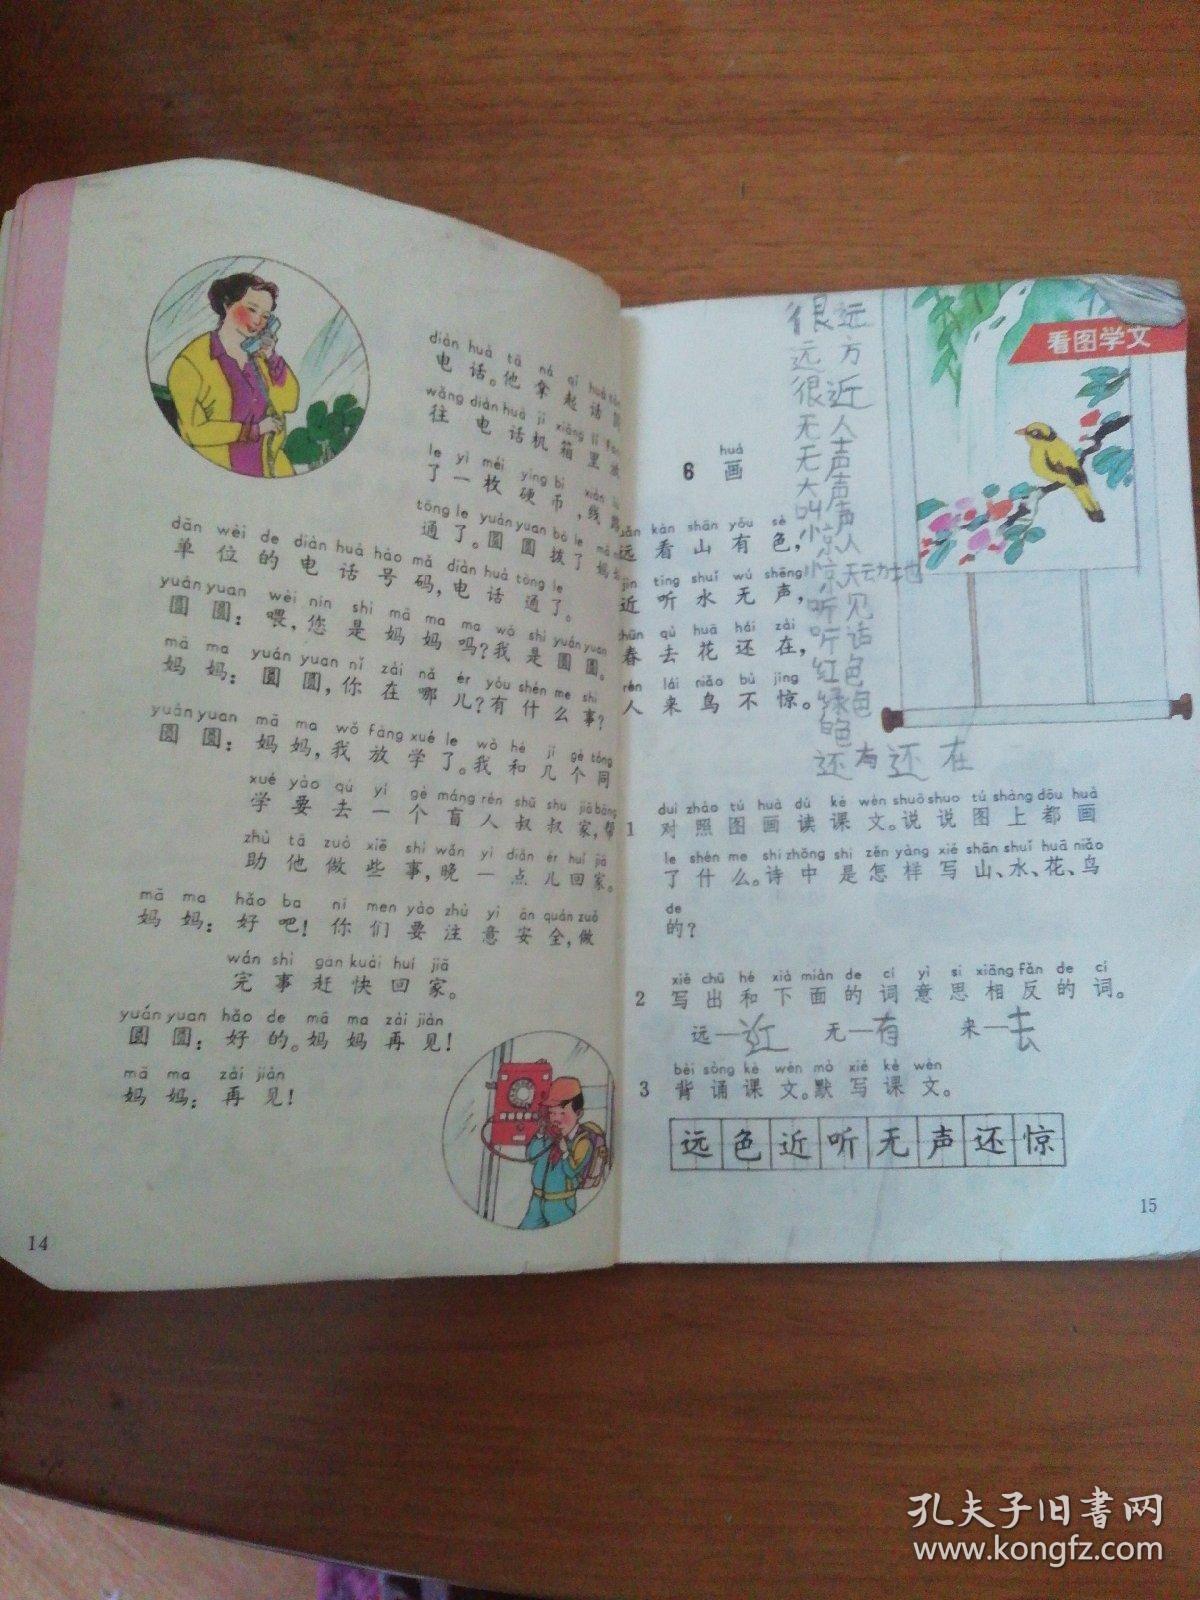 diàn huà tā ná qǐ huà
电话。他拿起话
wǎng diàn huà jī xiāng lǐ
往电话机箱里
le yì méi yìng bì xiàn
了一枚硬币,线
tōng le yuán yuan bō le
通了。圆圆拨了
dān wèi de diàn huà hào mǎ diàn huà tōng le
单位的电话号码,电话通了。
yuán yuan wèi nín shì mā ma ma wǒ shì yuán yuan
圆圆:喂,您是妈妈吗?我是圆圆。
mā ma yuán yuan nǐ zài nǎ ér yǒu shén me shì
妈妈:圆圆,你在哪儿?有什么事?
yuán yuan mā ma wǒ fàng xué le wǒ hé jǐ gè tóng
圆圆:妈妈,我放学了。我和几个同
xué yào qù yí gè máng rén shū shu jiā bāng
学要去一个盲人叔叔家,帮
zhù tā zuò xiē shì wǎn yì diǎn ér huí jiā
助他做些事,晚一点儿回家。
mā ma hǎo ba nǐ men yào zhù yì ān quán zuò
妈妈:好吧!你们要注意安全,做
wán shì gǎn kuài huí jiā
完事赶快回家。
yuán yuan hǎo de mā ma zài jiàn
圆圆:好的。妈妈再见!
mā ma zài jiàn
妈妈:再见!
14
看图学文
huà
6 画
kàn shān yǒu sè
远看山有色,
jìn tīng shuǐ wú shēng
近听水无声,
chūn qù huā hái zài
春去花还在,
rén lái niǎo bù jīng
人来鸟不惊。
很远
远方
很近
无人
无声
大声
叫声
惊人
惊天动地
听见
听话
红色
绿色
还有还在
duì zhào tú huà dú kè wén shuō shuo tú shàng dōu huà
1 对照图画读课文。说说图上都画
le shén me shī zhōng shì zěn yàng xiě shān shuǐ huā niǎo
了什么。诗中是怎样写山、水、花、鸟
de
的?
xiě chū hé xià miàn de cí yì si xiāng fǎn de cí
2 写出和下面的词意思相反的词。
远—近 无—有 来—去
bèi sòng kè wén mò xiě kè wén
3 背诵课文。默写课文。
远色近听无声还惊
15
孔夫子旧书网
www.kongfz.com